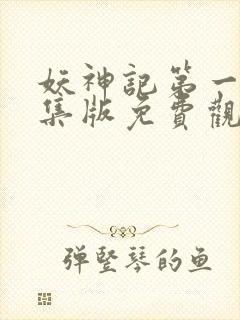 妖神記第一
集版免費觀
弹竖琴的鱼